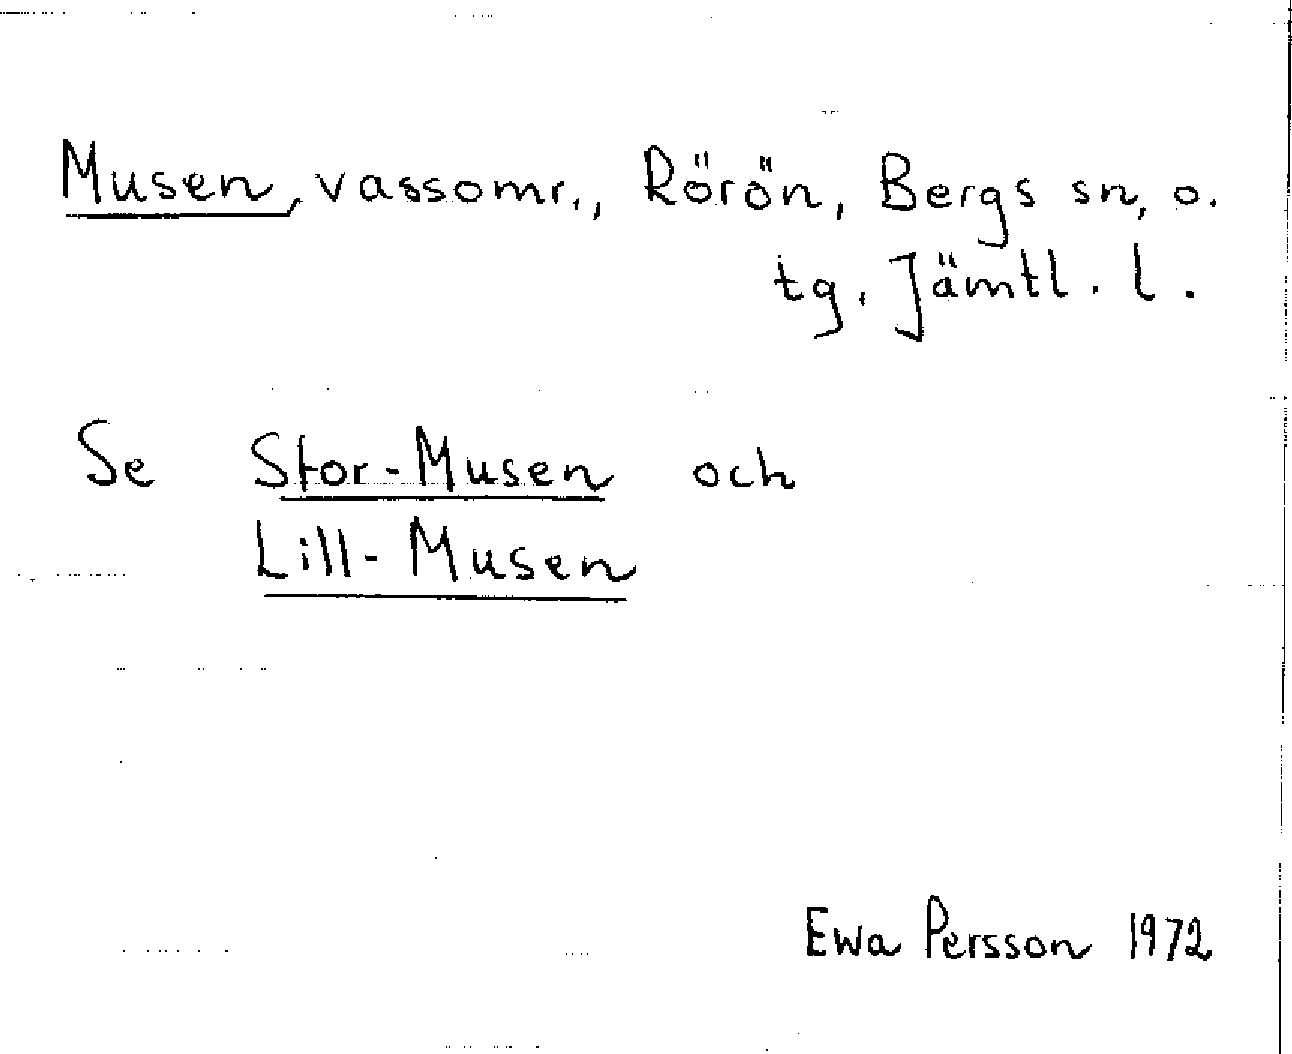 Musen, vassomr., Rörön, Bergs sn, o.
tg, Jämtl. l.
Se Stor-Musen och
Lill-Musen
Ewa Persson 1972